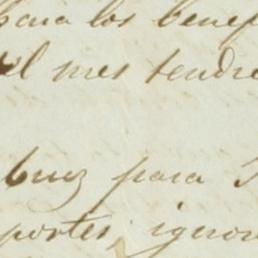 para los benef
el mes tendre
Cruz para
portes, ignor